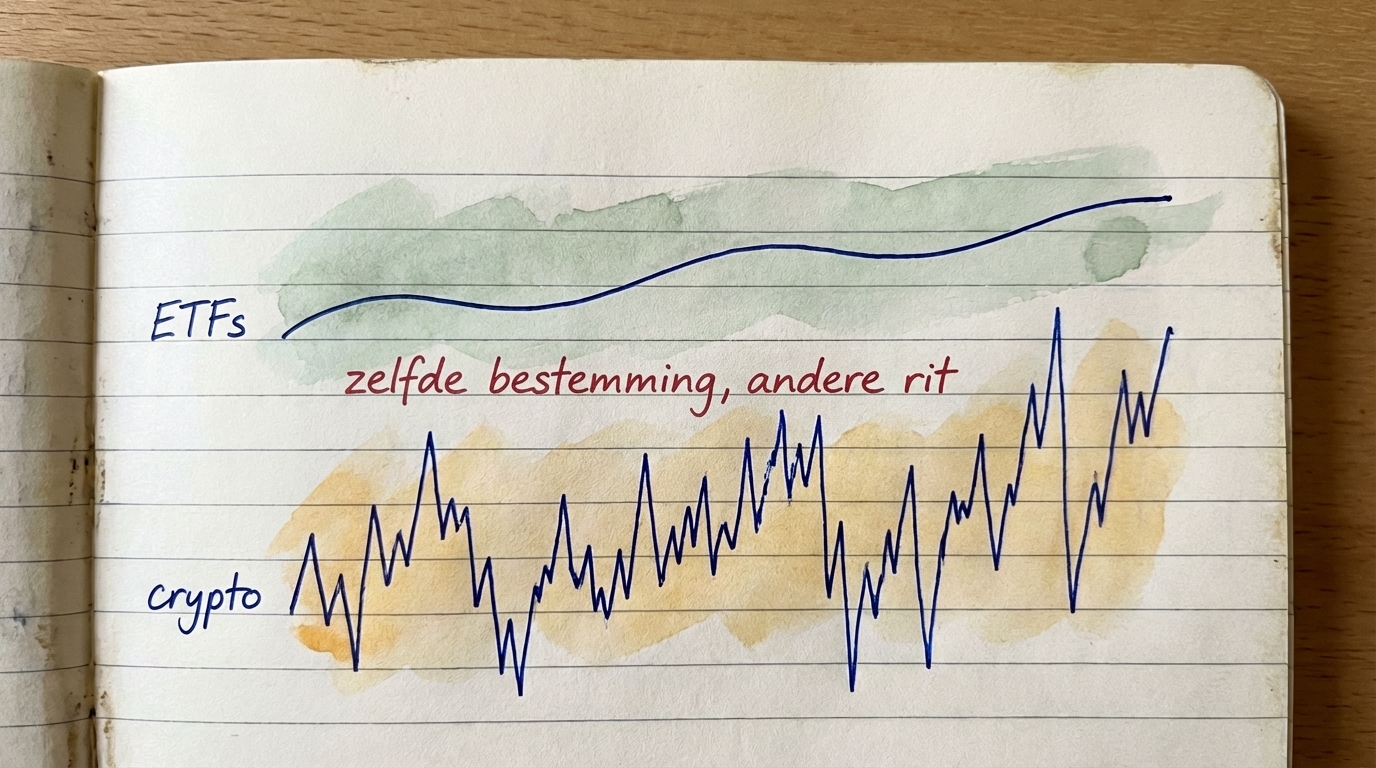 ETFs
zelfde bestemming, andere rit
crypto